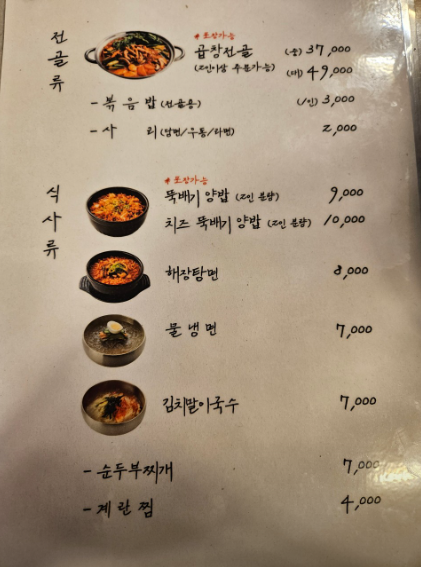 전골류
* 포장가능
곱창전골 (중) 37,000
(2인이상 주문가능) (대) 49,000
- 볶음밥 (전골용) (1인) 3,000
- 사 리 (당면/우동/라면) 2,000
식사류
* 포장가능
뚝배기 양밥 (2인 분량) 9,000
치즈 뚝배기 양밥 (2인 분량) 10,000
해장탕면 8,000
물냉면 7,000
김치말이국수 7,000
- 순두부찌개 7,000
- 계란찜 4,000